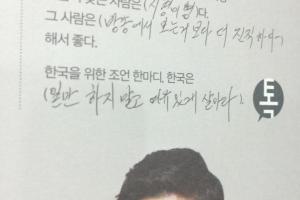 사람은 (시경이형)다.
그 사람은 (방송에서 보는거보다 더 진지하다)
해서 좋다.
한국을 위한 조언 한마디, 한국은
(일만 하지말고 여유있게 살아라).
톡